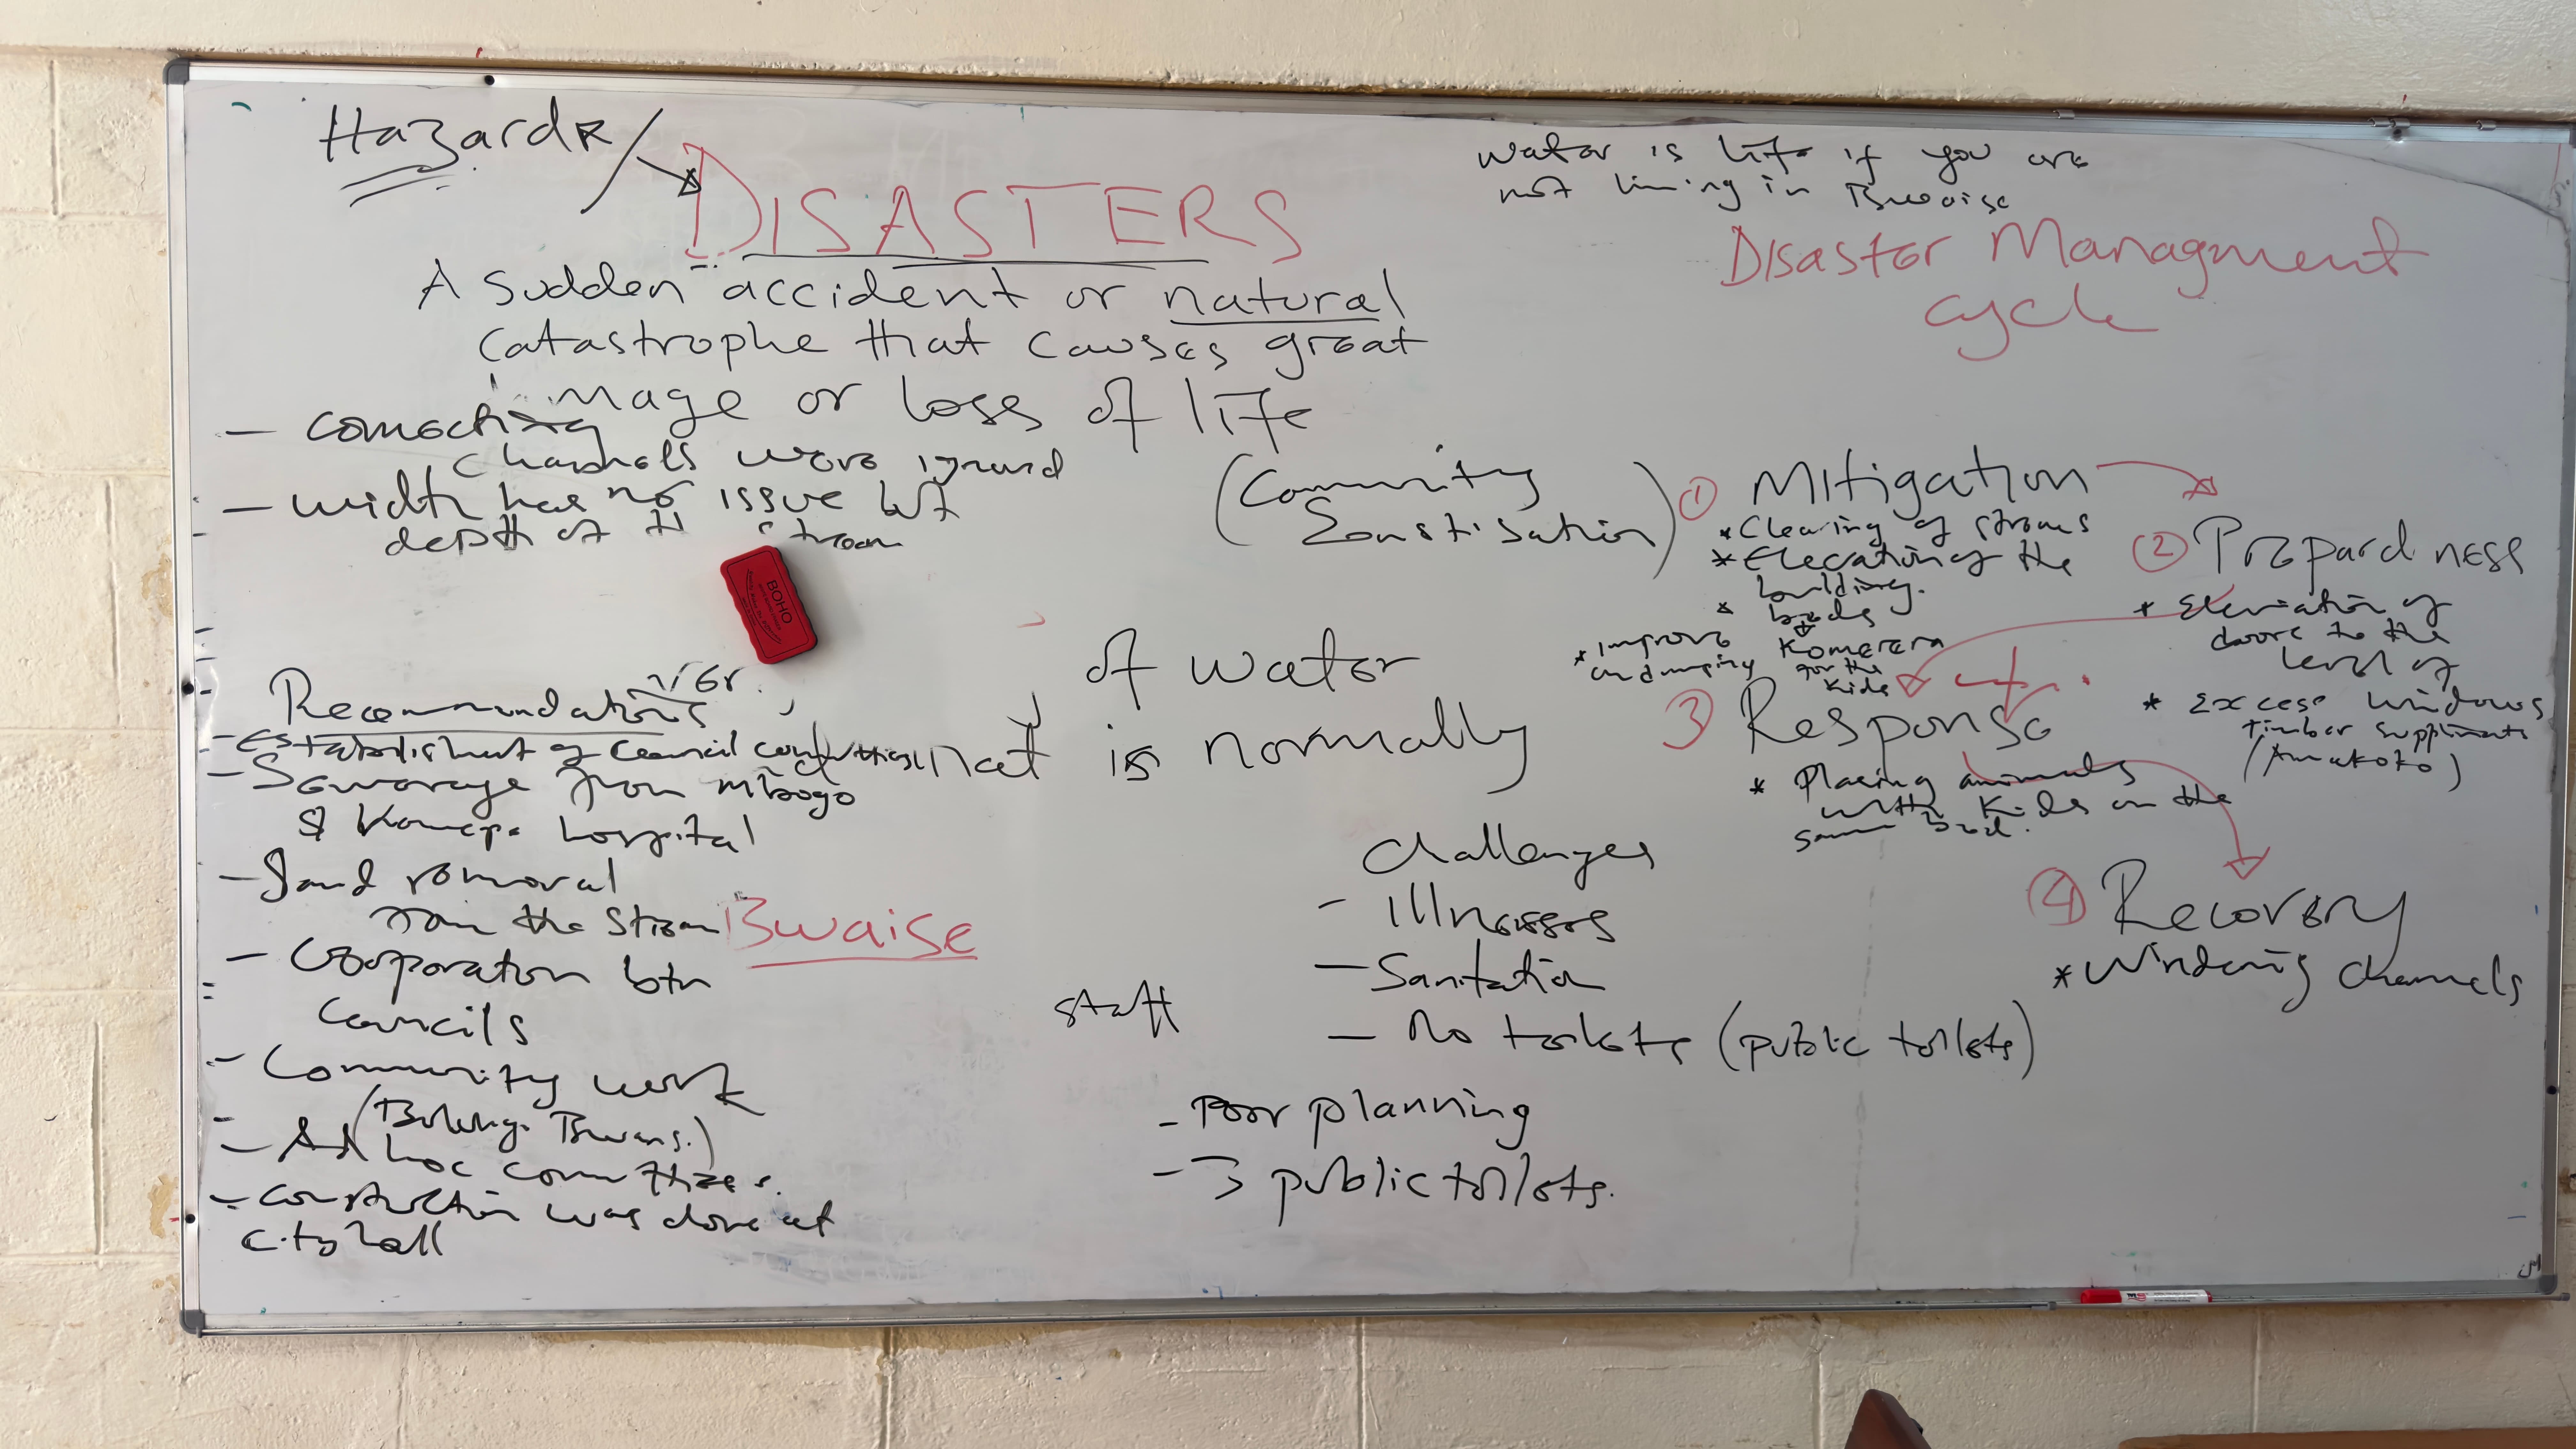 Hazards
DISASTERS
A sudden accident or natural
catastrophe that causes great
mage or loss of life
- connecting
channels were ignored
- width has no issue but
depth of th stream
BOHO
Recommendations
- Establishment of Council
- Sewarage from Mbogo
& hospital
- Sand removal
from the stream
Bwaise
- Cooperation btn
Councils
- Community work
- Ad hoc committees.
- construction was done at
city hall
of water
is normally
staff
Challenges
- Illnesses
- Sanitation
- No toilets (public toilets)
- Poor planning
- 3 public toilets.
water is life if you are
not living in Bwaise
Disaster Managment
cycle
(Community
Sensitisation)
① Mitigation
* Clearing of streams
* Elevation of the
building.
* beds
Komerera
for the
kids
* improve
on dumping
② Prepardness
* Eleviation of
doors to the
level of
* Excess windows
timber suppliments
(Amakoko)
③ Response
* Placing animals
with kids on the
same bed.
④ Recovery
* Windening channels